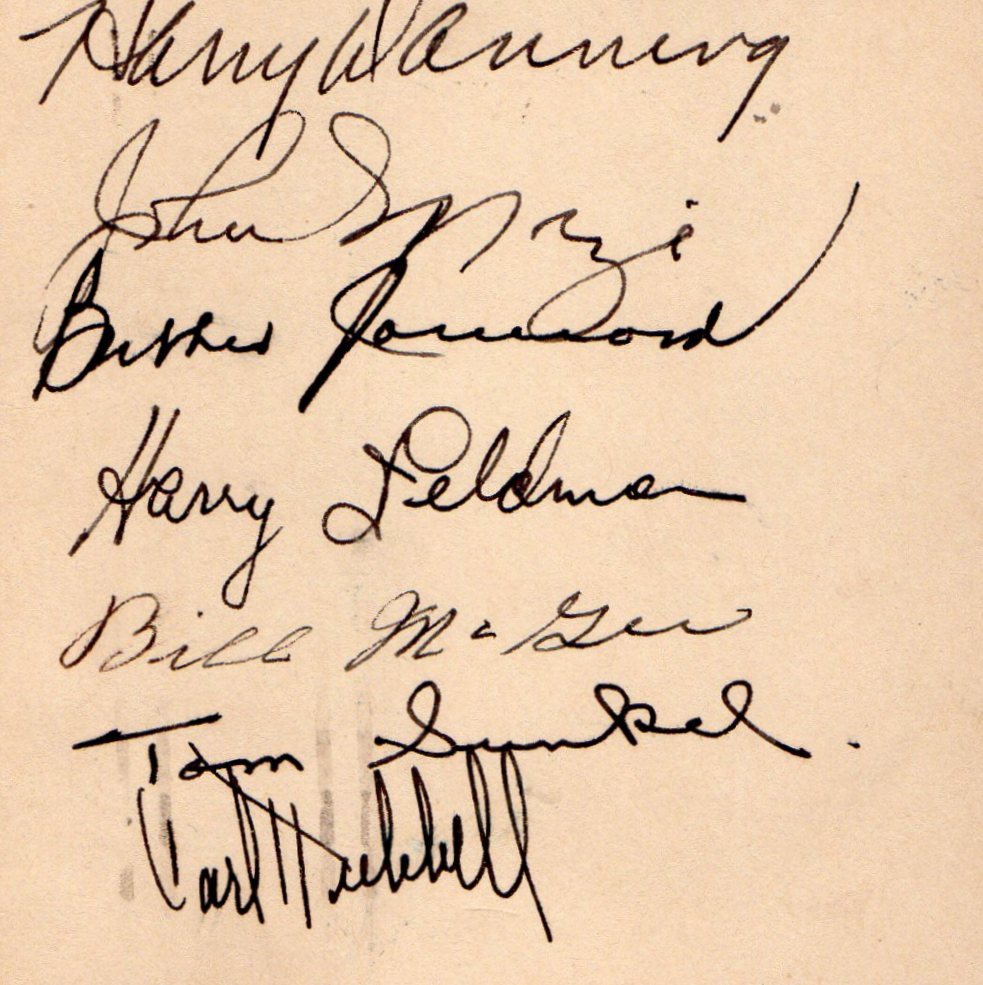 Harry Danning
John Mize
Buster Maynard
Harry Feldman
Bill McGee
Tom Sunkel.
Carl Hubbell